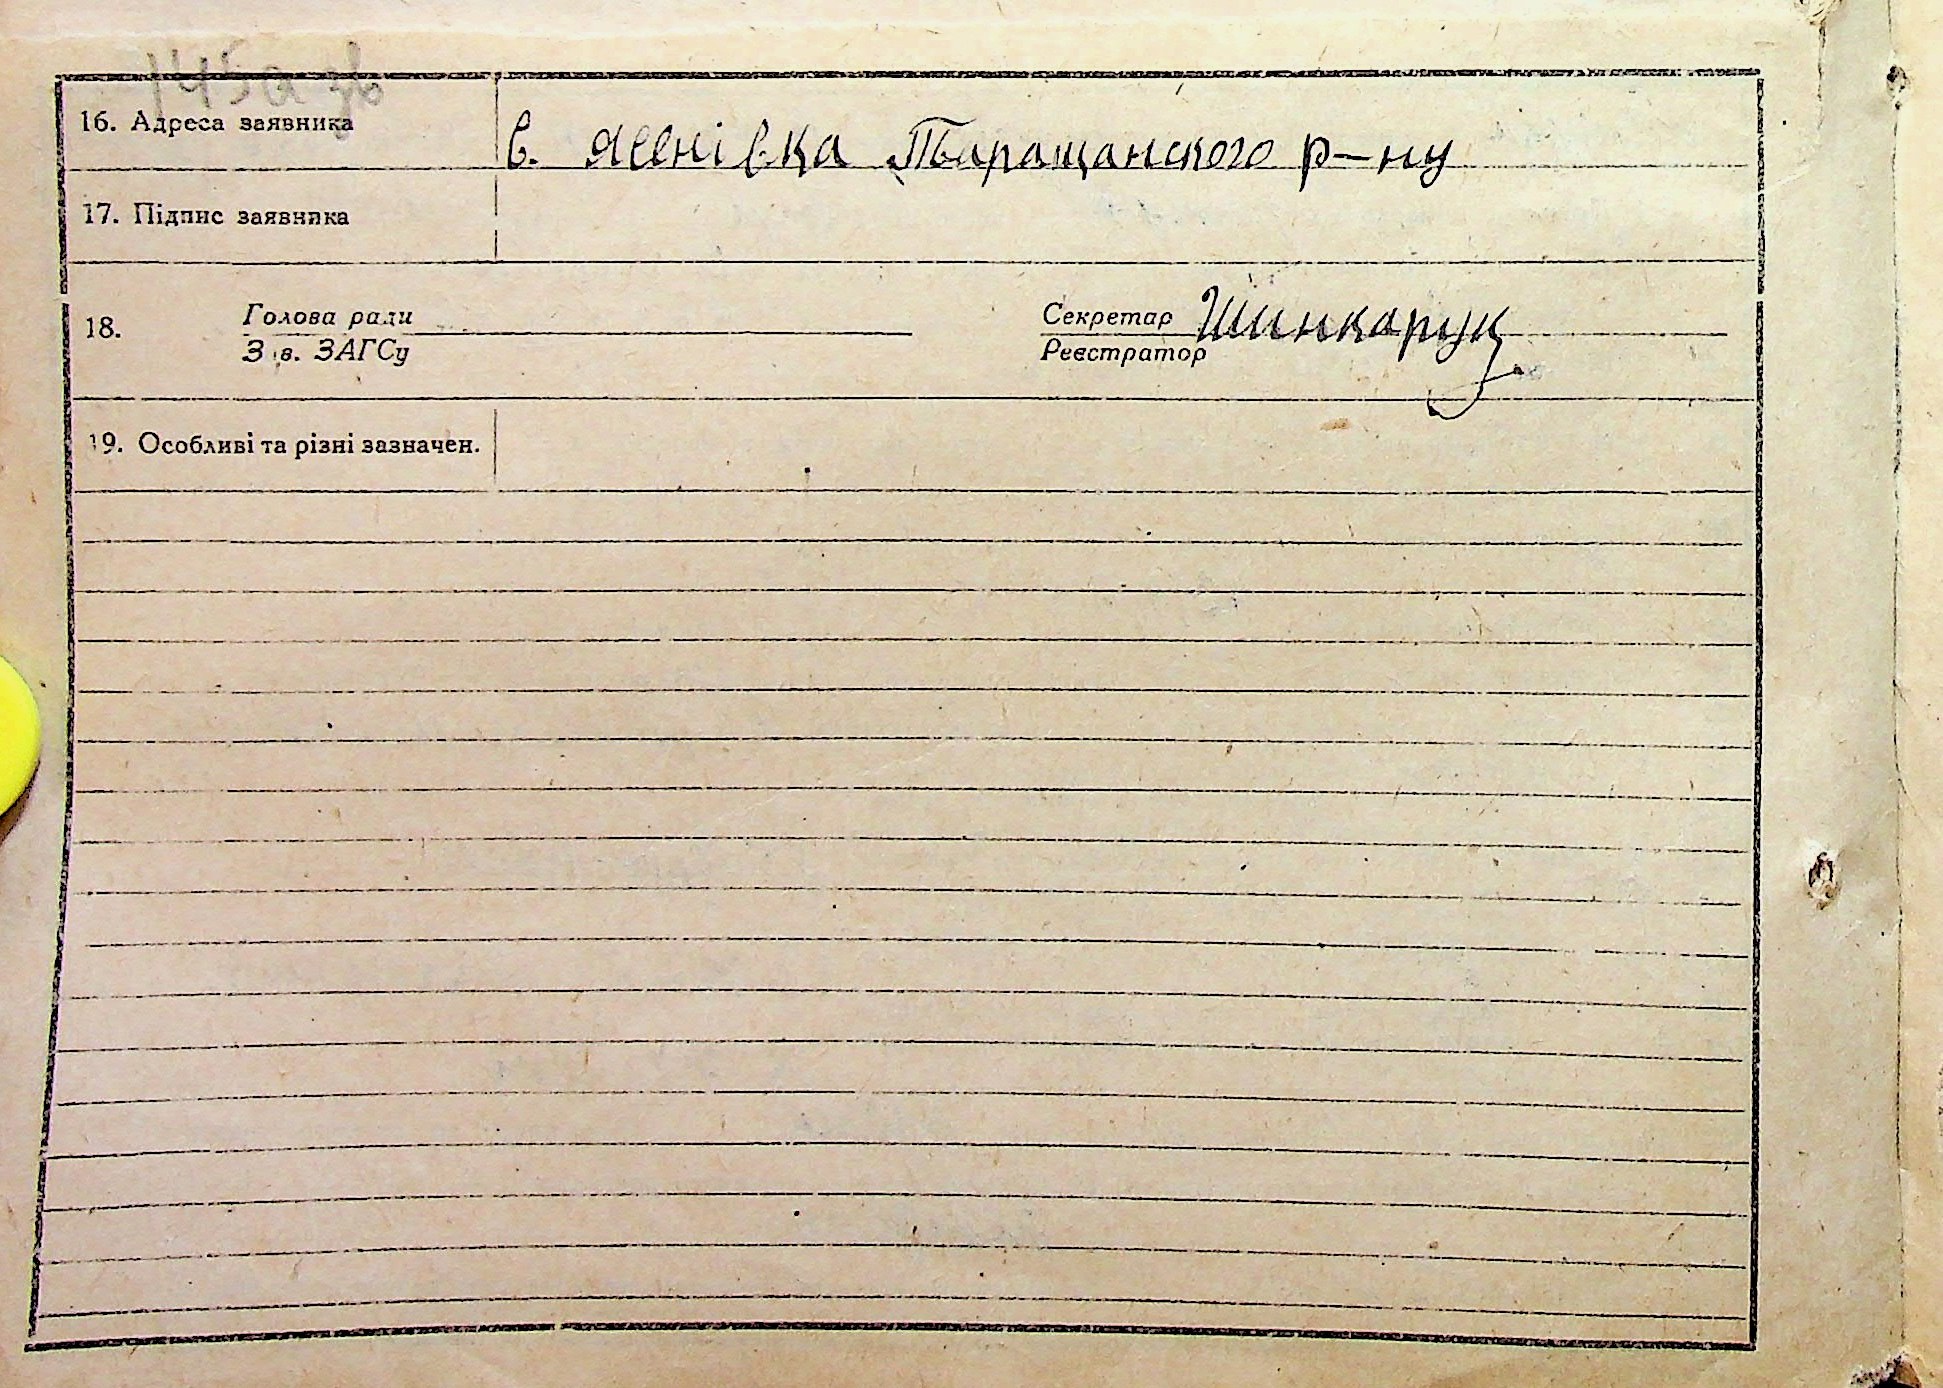 145а зв
16. Адреса заявника
в. Ясенівка Таращанского р-ну
17. Підпис заявника
18. Голова ради Секретар Шинкарук
Зав. ЗАГСу Реєстратор
19. Особливі та різні зазначен.